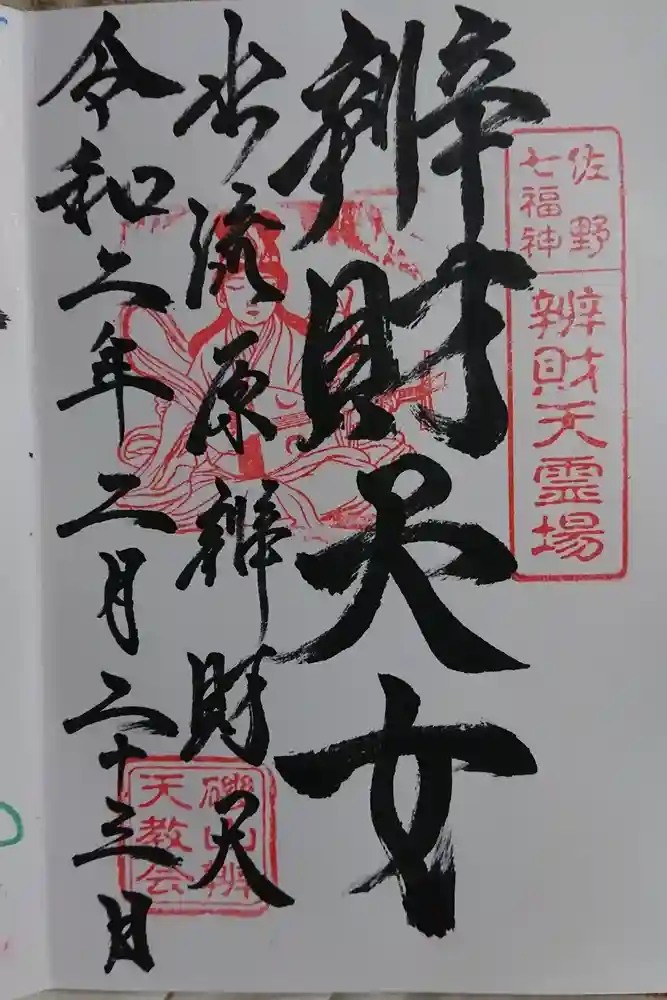 佐野
七福神
辨財天霊場
辨財天女
出流原辨財天
磯山辨
天教会
令和二年二月二十三日